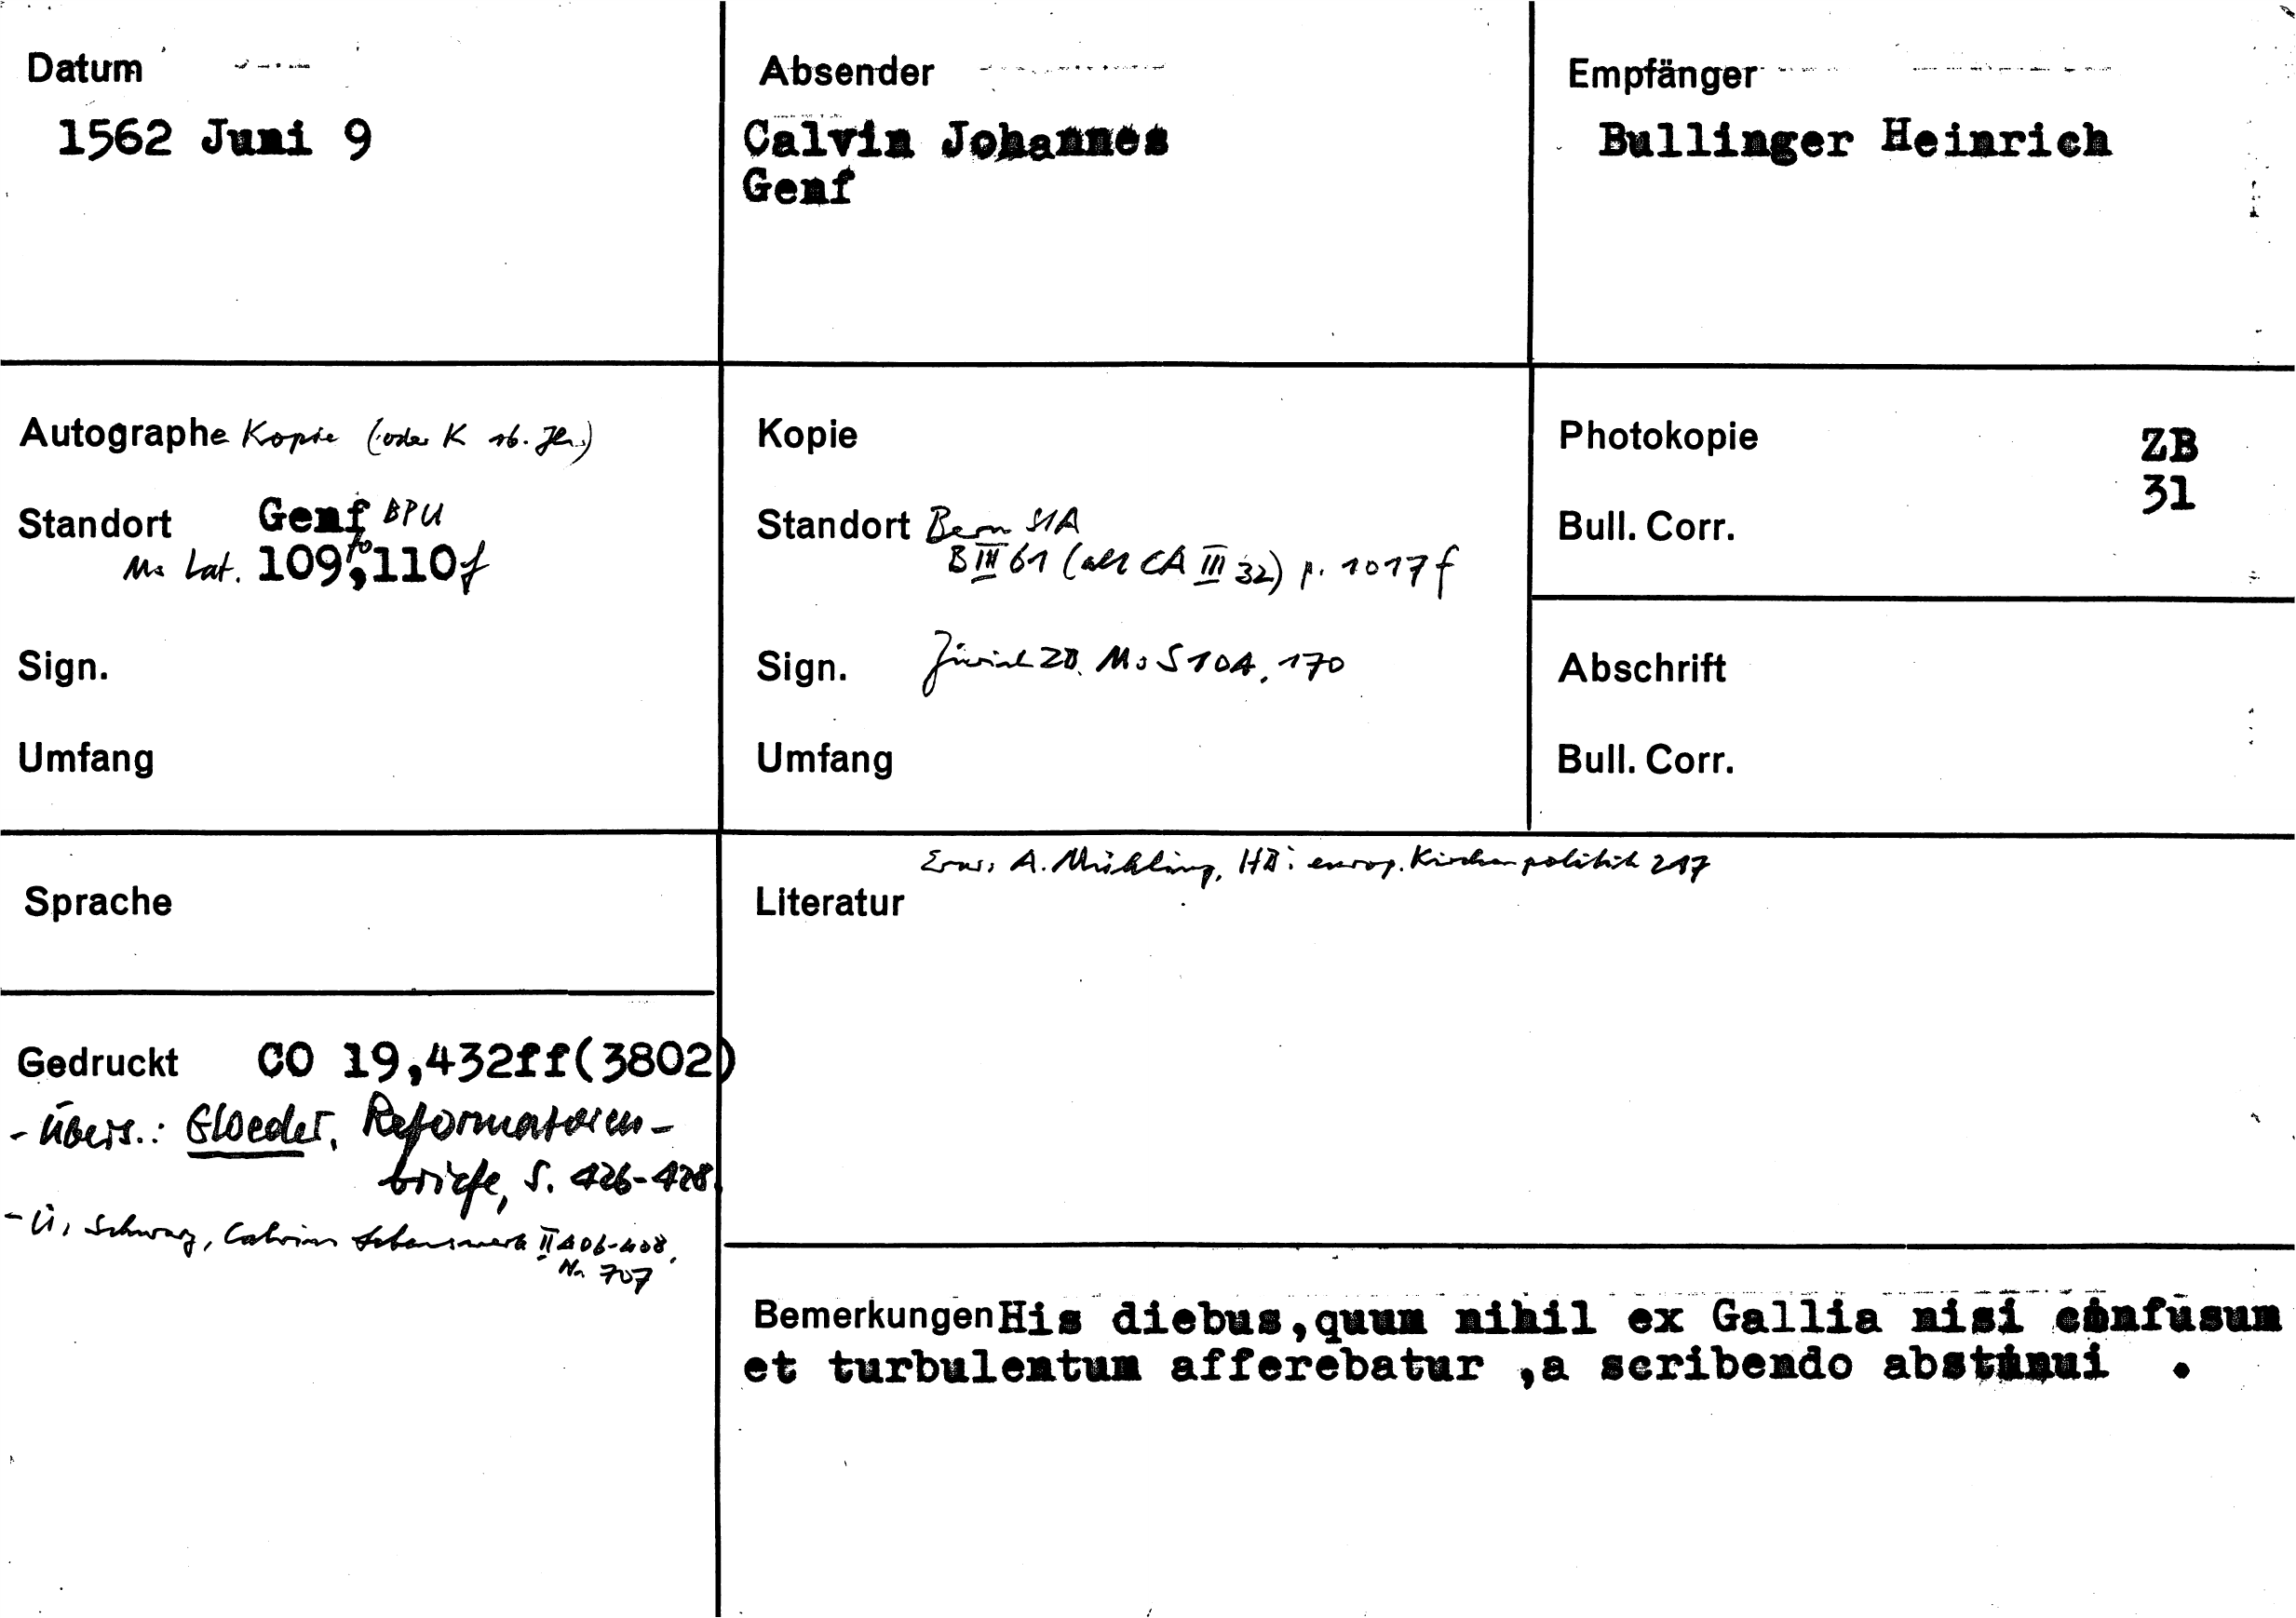 Datum
1562 Juni 9
Absender
Calvin Johannes
Genf
Empfänger
Bullinger Heinrich
Autographe Kopie (oder K 16. Jh.)
Standort Genf BPU
Ms Lat. 109, fo 110f
Sign.
Umfang
Kopie
Standort Bern StA
B III 61 (alt CA III 32) p. 1017f
Sign. Zürich ZB. Ms S 104, 170
Umfang
Photokopie ZB
31
Bull. Corr.
Abschrift
Bull. Corr.
Sprache
Erw.: A. Mühling, HB: europ. Kirchenpolitik 217
Literatur
Gedruckt CO 19,432ff(3802)
- Übers.: Gloeder, Reformatoren-
briefe, S. 426-428.
- Ü: Schwarz, Calvins Lebenswerk II 406-408,
Nr. 707
Bemerkungen His diebus,quum nihil ex Gallia nisi confusum
et turbulentum afferebatur ,a scribendo abstinui .